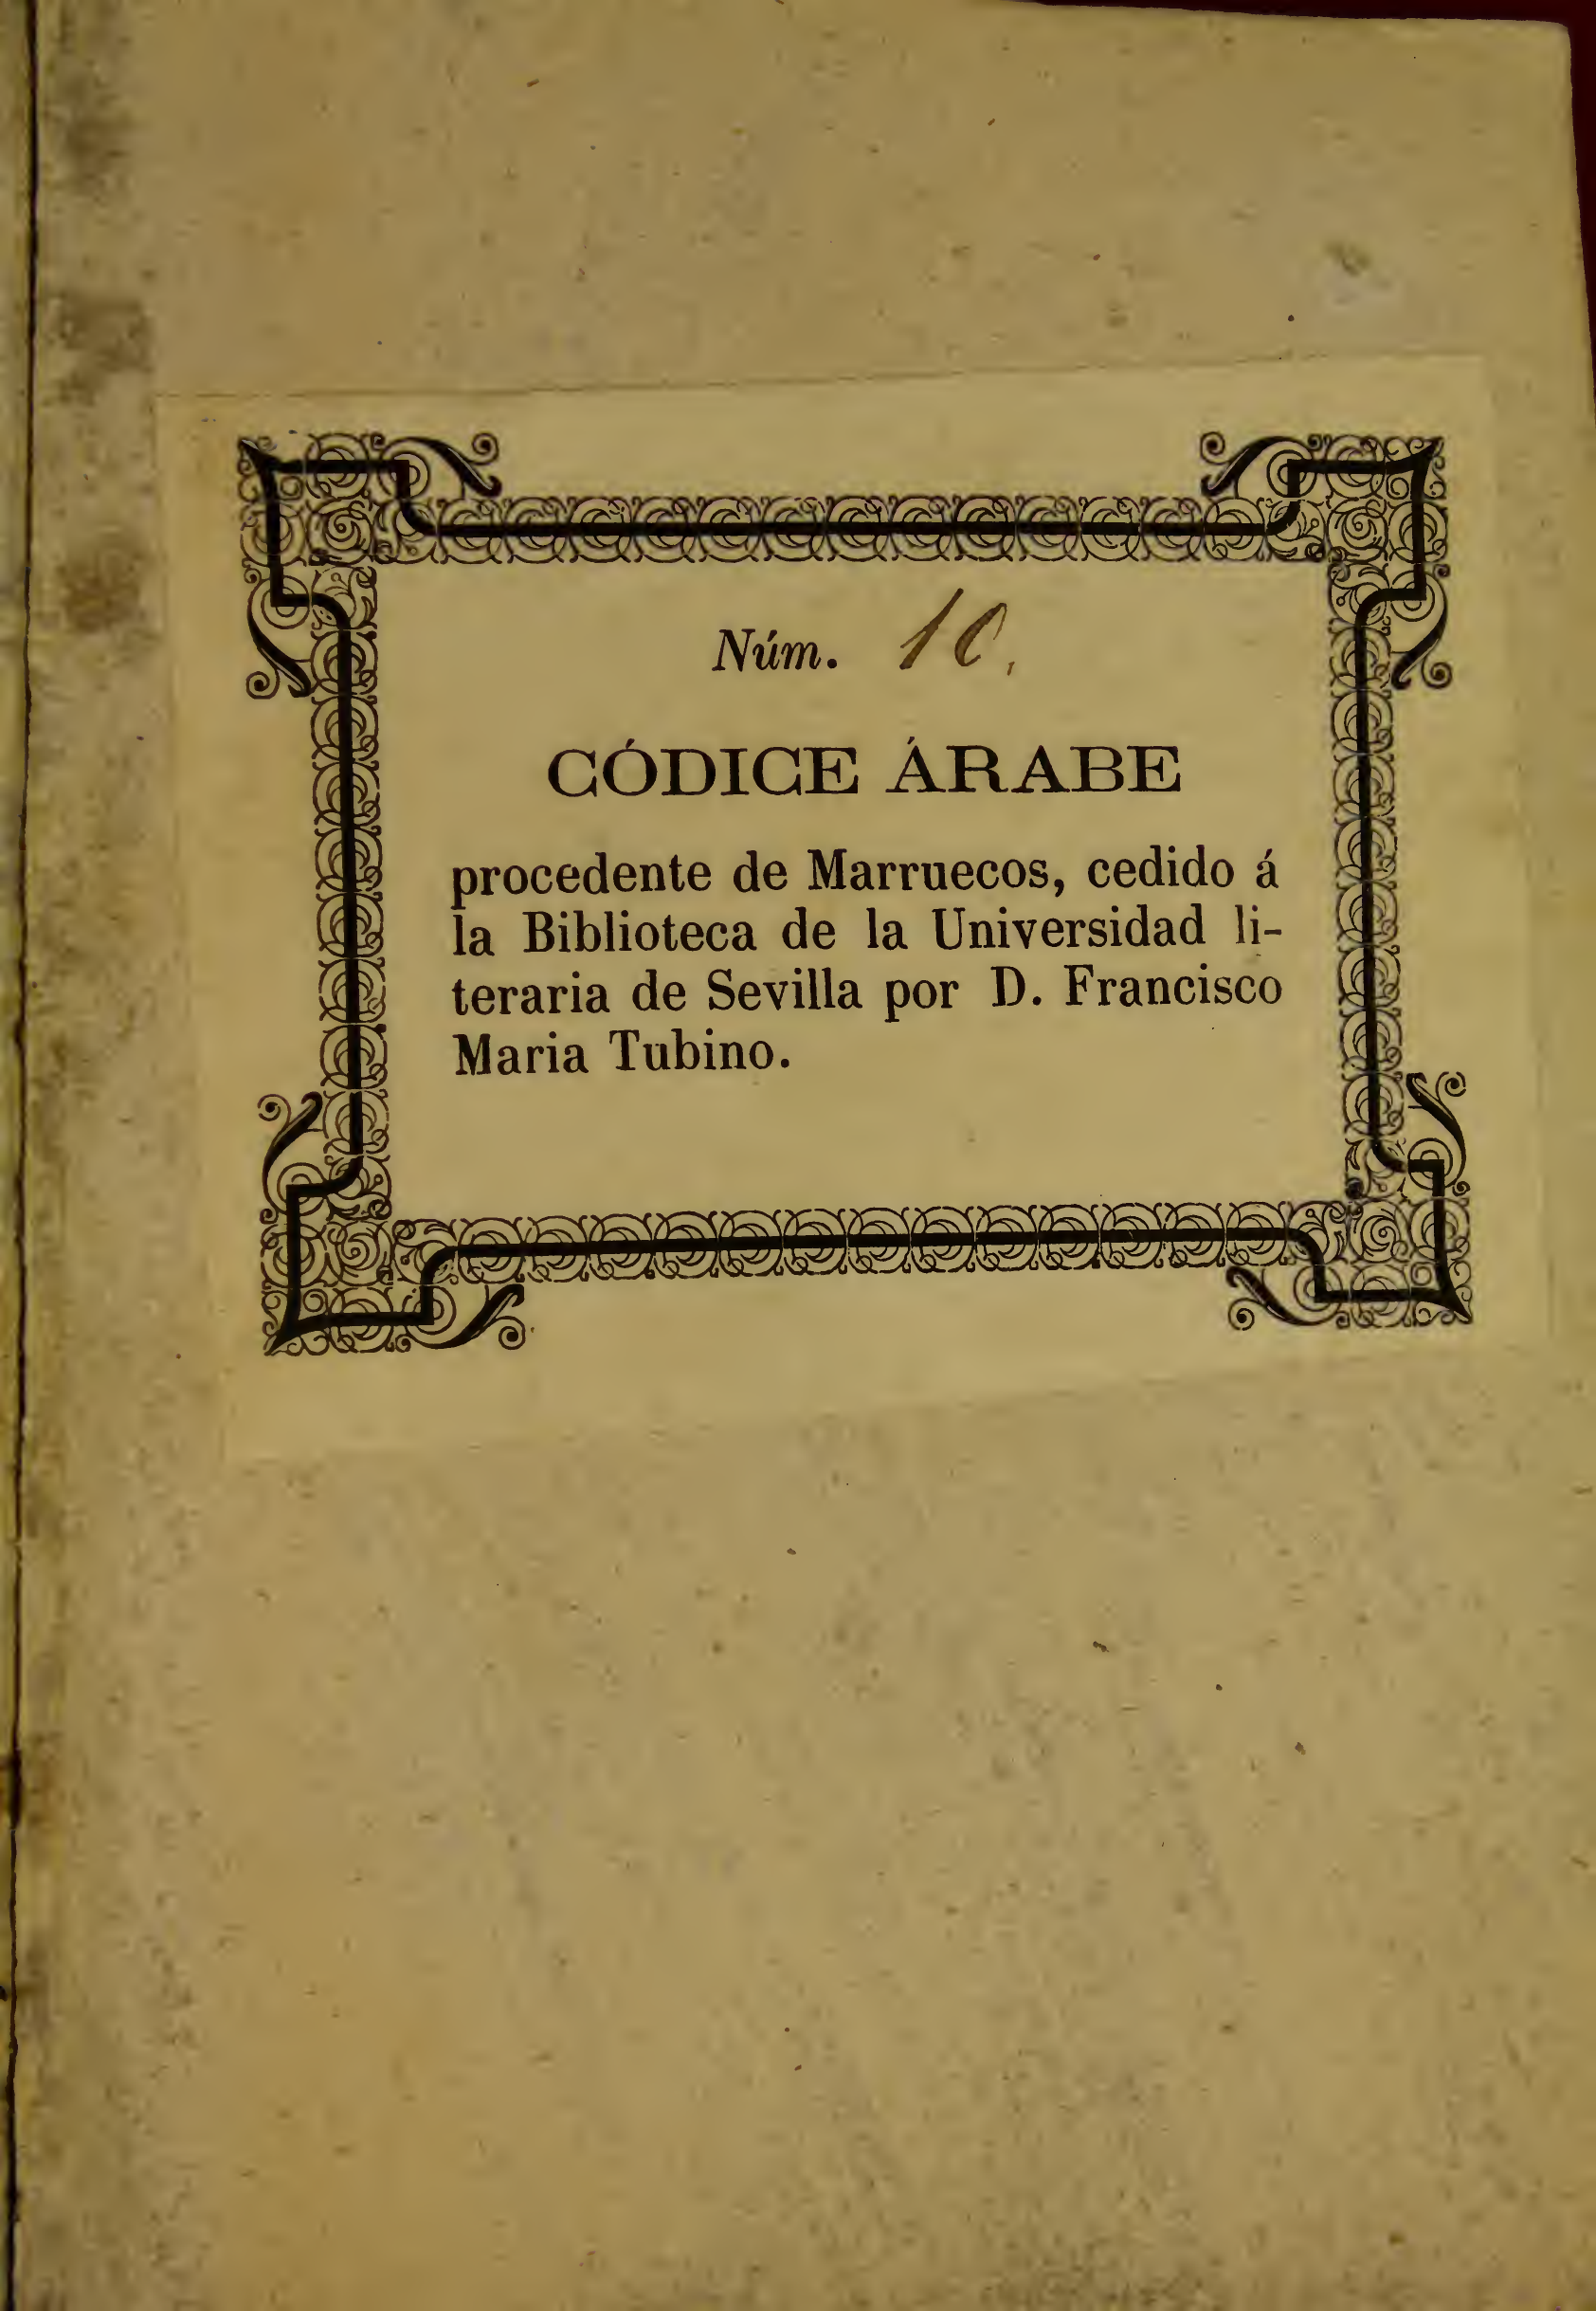 Núm. 10.
CÓDICE ÁRABE
procedente de Marruecos, cedido á
la Biblioteca de la Universidad li-
teraria de Sevilla por D. Francisco
Maria Tubino.